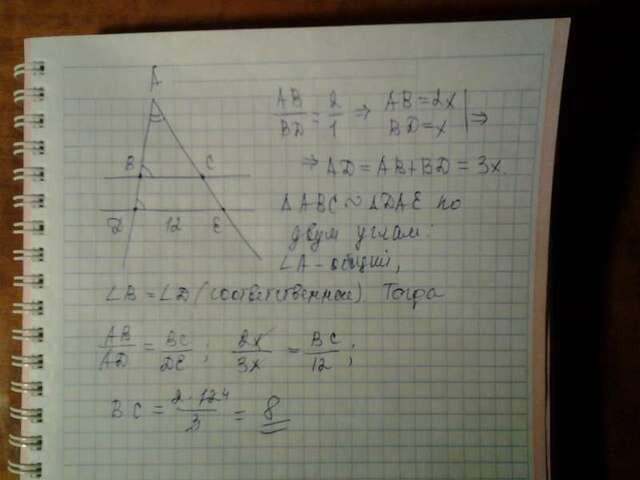 A
B C
D 12 E
AB/BD = 2/1 ⇒ AB = 2x | ⇒
BD = x
⇒ AD = AB + BD = 3x.
ΔABC ~ ΔDAE по
двум углам:
∠A - общий,
∠B = ∠D (соответственные). Тогда
AB/AD = BC/DE ; 2x/3x = BC/12 ;
BC = 2·12⁴/3 = 8